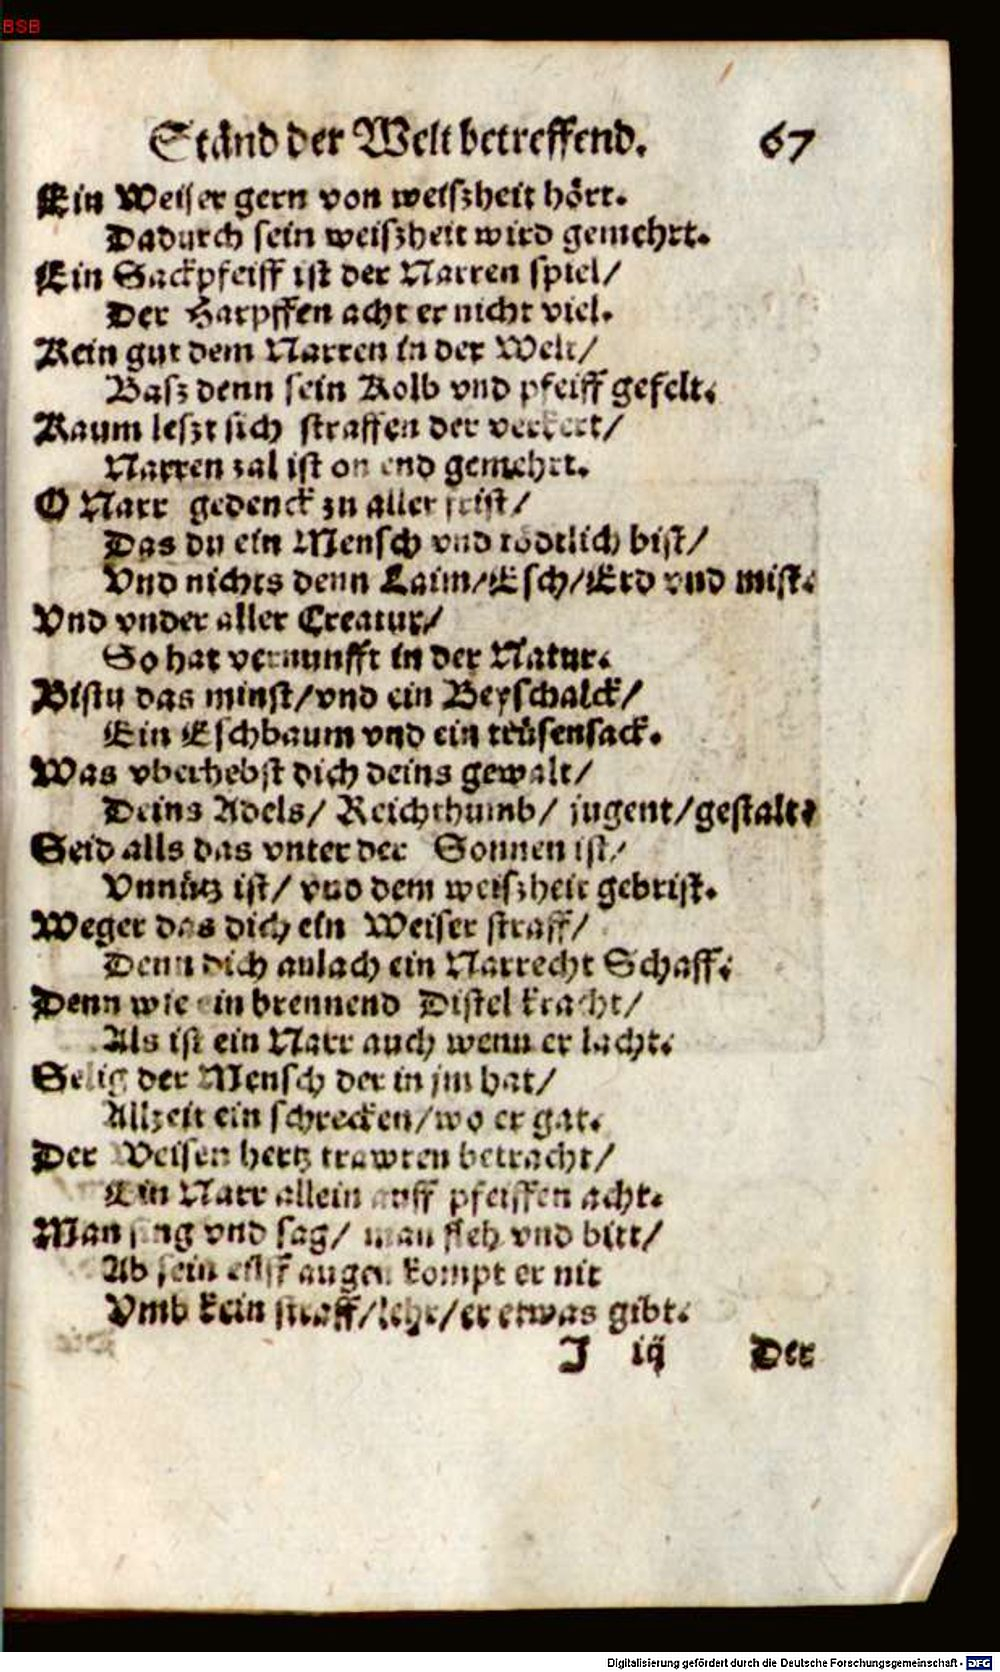 BSB
Ständ der Welt betreffend. 67
Ein Weiser gern von weißheit hört.
Dadurch sein weißheit wird gemehrt.
Ein Sackpfeiff ist der Narren spiel/
Der Harpffen acht er nicht viel.
Kein gut dem Narren in der Welt/
Baß denn sein Kolb vnd pfeiff gefelt.
Kaum leßt sich straffen der verkert/
Narren zal ist on end gemehrt.
O Narr gedenck zu aller frist/
Das du ein Mensch vnd tödtlich bist/
Vnd nichts denn Laim/Esch/Erd vnd mist.
Vnd vnder aller Creatur/
So hat vernunfft in der Natur.
Bistu das minst/vnd ein Beyschalck/
Ein Eschbaum vnd ein trüsensack.
Was vberhebst dich deins gewalt/
Deins Adels/ Reichthumb/ jugent/gestalt.
Seid alls das vnter der Sonnen ist/
Vnnütz ist/ vnd dem weißheit gebrist.
Weger das dich ein Weiser straff/
Denn dich anlach ein Narrecht Schaff.
Denn wie ein brennend Distel kracht/
Als ist ein Narr auch wenn er lacht.
Selig der Mensch der in jm hat/
Allzeit ein schrecken/wo er gat.
Der Weisen hertz trawren betracht/
Ein Narr allein auff pfeiffen acht.
Man sing vnd sag/ man fleh vnd bitt/
Ab sein augen kompt er nit
Vmb kein straff/lehr/er etwas gibt.
J iij Der
Digitalisierung gefördert durch die Deutsche Forschungsgemeinschaft - DFG